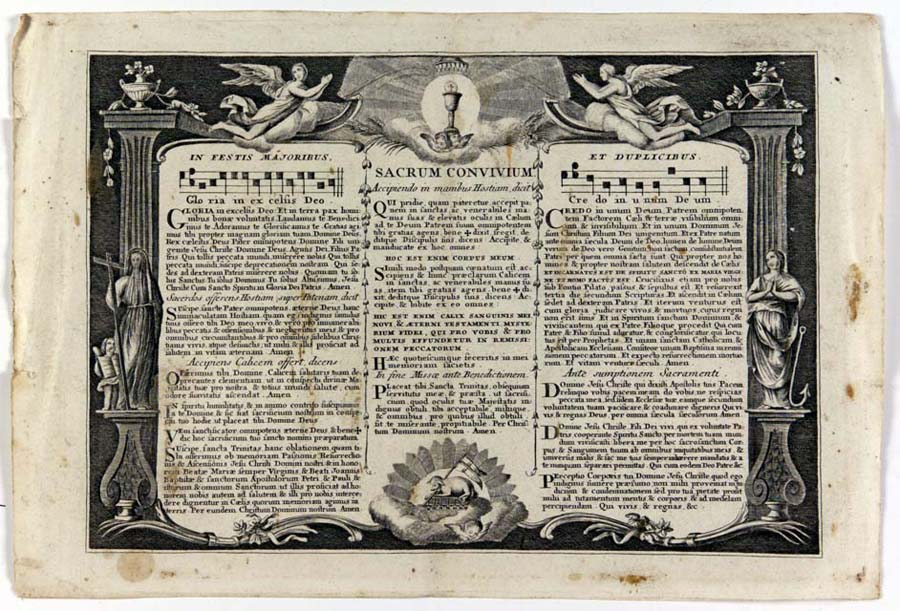 IN FESTIS MAJORIBUS,
Glo ria in ex celsis Deo.
GLORIA in excelsis Deo. Et in terra pax homi
nibus bonæ voluntatis. Laudamus te Benedici
mus te Adoramus te Glorificamus te. Gratias agi
mus tibi propter magnam gloriam tuam. Domine Deus
Rex cœlestis Deus Pater omnipotens Domine Fili uni
genite Jesu Christe Domine Deus Agnus Dei Filius Pa
tris Qui tollis peccata mundi, miserere nobis Qui tollis
peccata mundi, suscipe deprecationem nostram. Qui se
des ad dexteram Patris miserere nobis. Quoniam tu so
lus Sanctus Tu solus Dominus Tu solus Altissimus, Jesu
Christe Cum Sancto Spiritu in Gloria Dei Patris. Amen.
Sacerdos offerens Hostiam super Patenam dicit
Suscipe sancte Pater omnipotens æterne Deus, hanc
immaculatam Hostiam quam ego indignus famulus
tuus offero tibi Deo meo vivo & vero pro innumerabi
libus peccatis & offensionibus & negligentiis meis & pro
omnibus circumstantibus & pro omnibus fidelibus Chris
tianis vivis, atque defunctis, ut mihi & illis proficiat ad
salutem in vitam æternam Amen.
Accipiens Calicem offert, dicens
Offerimus tibi Domine Calicem salutaris tuam de
precantes clementiam, ut in conspectu divinæ Ma
jestatis tuæ pro nostra & totius mundi salute, cum
odore suavitatis ascendat. Amen.
IN spiritu humilitatis & in animo contrito suscipiamur
a te Domine & sic fiat sacrificium nostrum in conspec
tu tuo hodie ut placeat tibi Domine Deus.
Veni sanctificator omnipotens æterne Deus & bene✠
dic hoc sacrificium tuo sancto nomini præparatum.
Suscipe, sancta Trinitas, hanc oblationem quam ti
bi offerimus ob memoriam Passionis Resurrectio
nis & Ascensionis Jesu Christi Domini nostri & in hono
rem Beatæ Mariæ semper Virginis & Beati Joannis
Baptistæ & sanctorum Apostolorum Petri & Pauli &
istorum & omnium Sanctorum ut illis proficiat ad ho
norem nobis autem ad salutem & illi pro nobis interce
dere dignentur in Cælis quorum memoriam agimus in
terris Per eundem Christum Dominum nostrum Amen
SACRUM CONVIVIUM
Accipiendo in manibus Hostiam, dicit
QUI pridie, quam pateretur, accepit pa
nem in sanctas, ac venerabiles ma
nus suas & elevatis oculis in Cælum
ad te Deum Patrem suum omnipotentem
tibi gratias agens, bene✠dixit, fregit, de
ditque Discipulis suis, dicens, Accipite, &
manducate ex hoc omnes.
HOC EST ENIM CORPUS MEUM
Simili modo postquam cœnatum est, ac
cipiens & hunc præclarum Calicem
in sanctas, ac venerabiles manus su
as, item tibi gratias agens, bene✠di
xit, deditque Discipulis suis, dicens, Ac
cipite, & bibite ex eo omnes
HIC EST ENIM CALIX SANGUINIS MEI
NOVI, & ÆTERNI TESTAMENTI MYSTE
RIUM FIDEI, QUI PRO VOBIS, & PRO
MULTIS EFFUNDETUR IN REMISSI
ONEM PECCATORUM.
HÆC quotiescumque feceritis in mei
memoriam facietis.
In fine Missæ ante Benedictionem.
Placeat tibi, Sancta Trinitas, obsequium
servitutis meæ, & præsta, ut sacrifi
cium, quod oculis tuæ Majestatis in
dignus obtuli, tibi acceptabile, mihique,
& omnibus, pro quibus illud obtuli
sit te miserante, propitiabile. Per Chris
tum Dominum nostrum. Amen.
ET DUPLICIBUS.
Cre do in u num De um
CREDO in unum Deum, Patrem omnipoten
tem Factorem Cæli & terræ visibilium omni
um & invisibilium. Et in unum Dominum Je
sum Christum Filium Dei unigenitum. Et ex Patre natum
ante omnia sæcula Deum de Deo, lumen de lumine Deum
verum de Deo vero Genitum non factum consubstantialem
Patri per quem omnia facta sunt Qui propter nos ho
mines & propter nostram salutem descendit de Cælis
ET INCARNATUS EST DE SPIRITU SANCTO EX MARIA VIRGI
NE ET HOMO FACTUS EST. Crucifixus etiam pro nobis
sub Pontio Pilato passus & sepultus est Et resurrexit
tertia die secundum Scripturas Et ascendit in Cælum
sedet ad dexteram Patris Et iterum venturus est
cum gloria judicare vivos & mortuos cujus regni
non erit finis Et in Spiritum sanctum Dominum &
vivificantem qui ex Patre Filioque procedit Qui cum
Patre & Filio simul adoratur & conglorificatur qui locu
tus est per Prophetas Et unam sanctam Catholicam &
Apostolicam Ecclesiam. Confiteor unum Baptisma in remis
sionem peccatorum Et expecto resurrectionem mortuo
rum Et vitam venturi sæculi Amen
Ante sumptionem Sacramenti.
Domine Jesu Christe qui dixisti Apostolis tuis Pacem
relinquo vobis, pacem meam do vobis ne respicias
peccata mea, sed fidem Ecclesiæ tuæ, eamque secundum
voluntatem tuam pacificare & coadunare digneris Qui vi
vis & regnas Deus per omnia sæcula sæculorum Amen
Domine Jesu Christe, Fili Dei vivi, qui ex voluntate Pa
tris cooperante Spiritu Sancto per mortem tuam mun
dum vivificasti libera me per hoc sacrosanctum Cor
pus & Sanguinem tuum ab omnibus iniquitatibus meis &
universis malis & fac me tuis semper inhærere mandatis & a
te nunquam separari permittas. Qui cum eodem Deo Patre &c.
Perceptio Corporis tui Domine Jesu Christe, quod ego
indignus sumere præsumo, non mihi proveniat in ju
dicium & condemnationem sed pro tua pietate prosit
mihi ad tutamentum mentis & corporis & ad medelam
percipiendam. Qui vivis & regnas, &c.